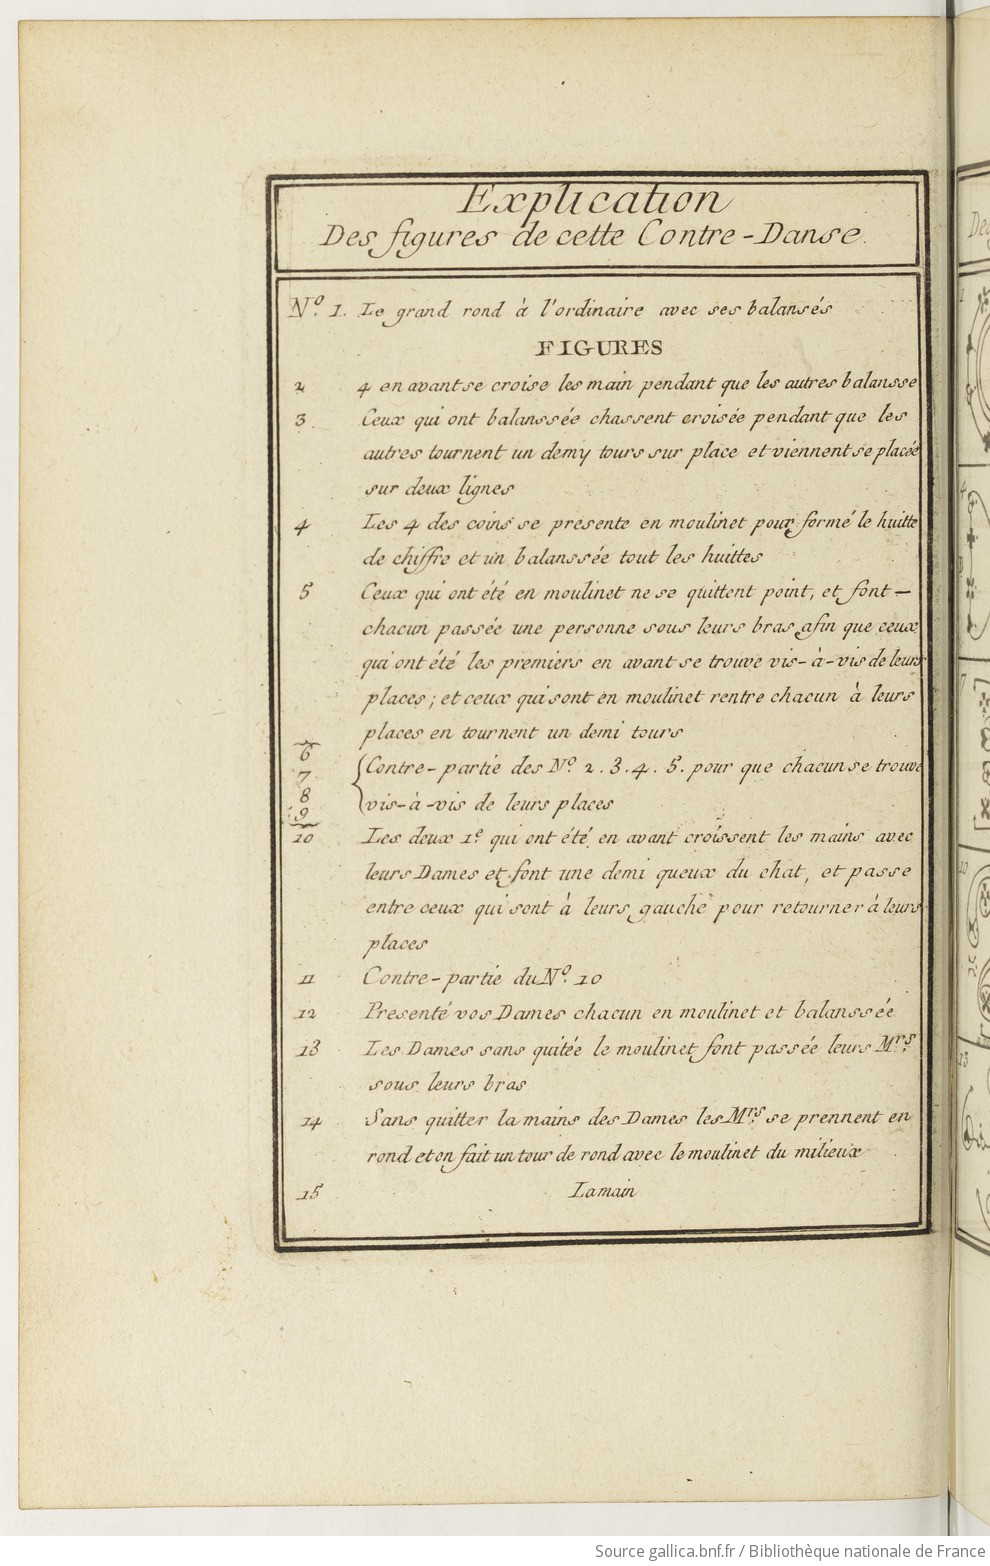 Explication
Des figures de cette Contre-Danse.
N.º 1. Le grand rond à l'ordinaire avec ses balansés
FIGURES
2 4 en avant se croise les main pendant que les autres balansse
3. Ceux qui ont balanssée chassent croisée pendant que les
autres tournent un demy tours sur place et viennent se placée
sur deux lignes
4 Les 4 des coins se presente en moulinet pour formé le huitte
de chiffre et un balanssée tout les huittes
5 Ceux qui ont été en moulinet ne se quittent point, et font —
chacun passée une personne sous leurs bras, afin que ceux
qui ont été les premiers en avant se trouve vis-à-vis de leurs
places; et ceux qui sont en moulinet rentre chacun à leurs
places en tournent un demi tours
6
7
8
9
{Contre-partie des N.º 2. 3. 4. 5. pour que chacun se trouve
vis-à-vis de leurs places
10 Les deux 1.e qui ont été en avant croissent les mains avec
leurs Dames et font une demi queux du chat, et passe
entre ceux qui sont à leurs gauche pour retourner à leurs
places
11 Contre-partie du N.º 10
12 Presenté vos Dames chacun en moulinet et balanssée
13 Les Dames sans quitée le moulinet font passée leurs M.rs
sous leurs bras
14 Sans quitter la mains des Dames les M.rs se prennent en
rond et on fait un tour de rond avec le moulinet du milieux
15 La main
Source gallica.bnf.fr / Bibliothèque nationale de France